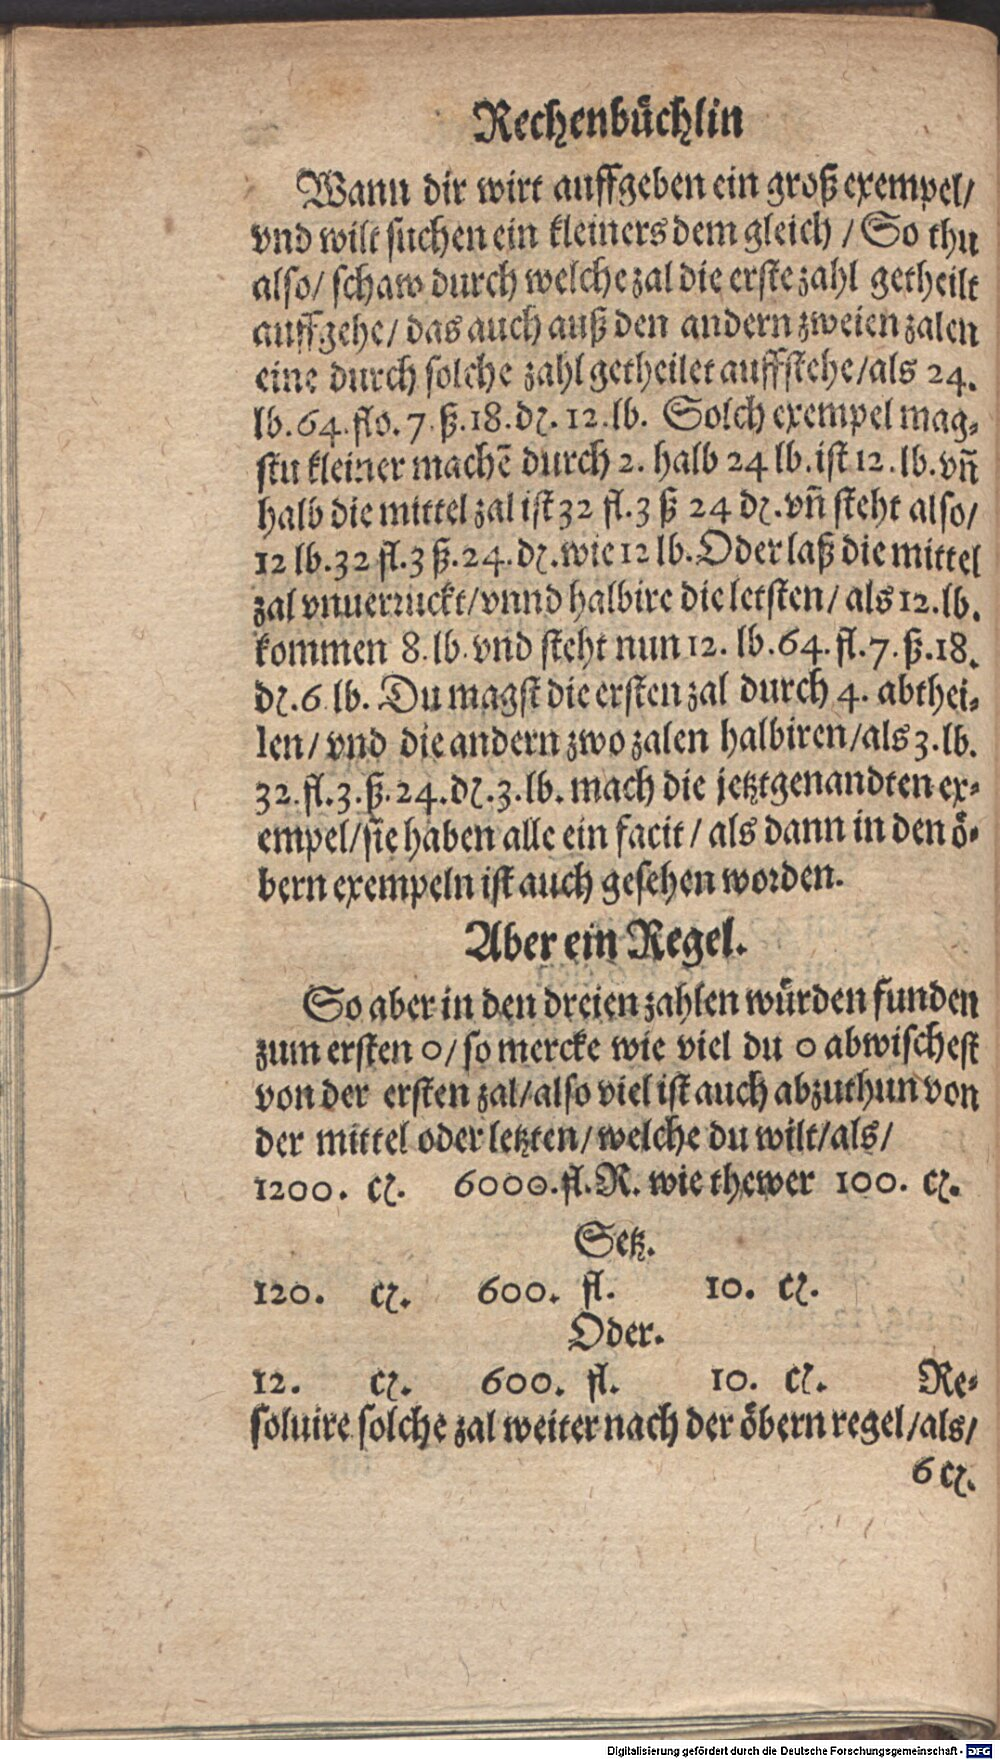 Rechenbüchlin
Wann dir wirt auffgeben ein groß exempel/
vnd wilt suchen ein kleiners dem gleich / So thu
also/ schaw durch welche zal die erste zahl getheilt
auffgehe/ das auch auß den andern zweien zalen
eine durch solche zahl getheilet auffstehe/als 24.
lb. 64. flo. 7. ß. 18. dz. 12. lb. Solch exempel mag⸗
stu kleiner machē durch 2. halb 24 lb. ist 12. lb. vñ
halb die mittel zal ist 32 fl. 3 ß 24 dz. vñ steht also/
12 lb. 32 fl. 3 ß. 24. dz. wie 12 lb. Oder laß die mittel
zal vnuerruckt/vnnd halbire die letsten/ als 12. lb.
kommen 8. lb. vnd steht nun 12. lb. 64. fl. 7. ß. 18.
dz. 6 lb. Du magst die ersten zal durch 4. abthei⸗
len/ vnd die andern zwo zalen halbiren/als 3. lb.
32. fl. 3. ß. 24. dz. 3. lb. mach die jetztgenandten ex⸗
empel/sie haben alle ein facit / als dann in den ö⸗
bern exempeln ist auch gesehen worden.
Aber ein Regel.
So aber in den dreien zahlen würden funden
zum ersten 0/ so mercke wie viel du 0 abwischest
von der ersten zal/also viel ist auch abzuthun von
der mittel oder letzten/welche du wilt/als/
1200. cz. 6000. fl. R. wie thewer 100. cz.
Setz.
120. cz. 600. fl. 10. cz.
Oder.
12. cz. 600. fl. 10. cz. Re⸗
soluire solche zal weiter nach der öbern regel/als/
6 cz.
Digitalisierung gefördert durch die Deutsche Forschungsgemeinschaft - DFG